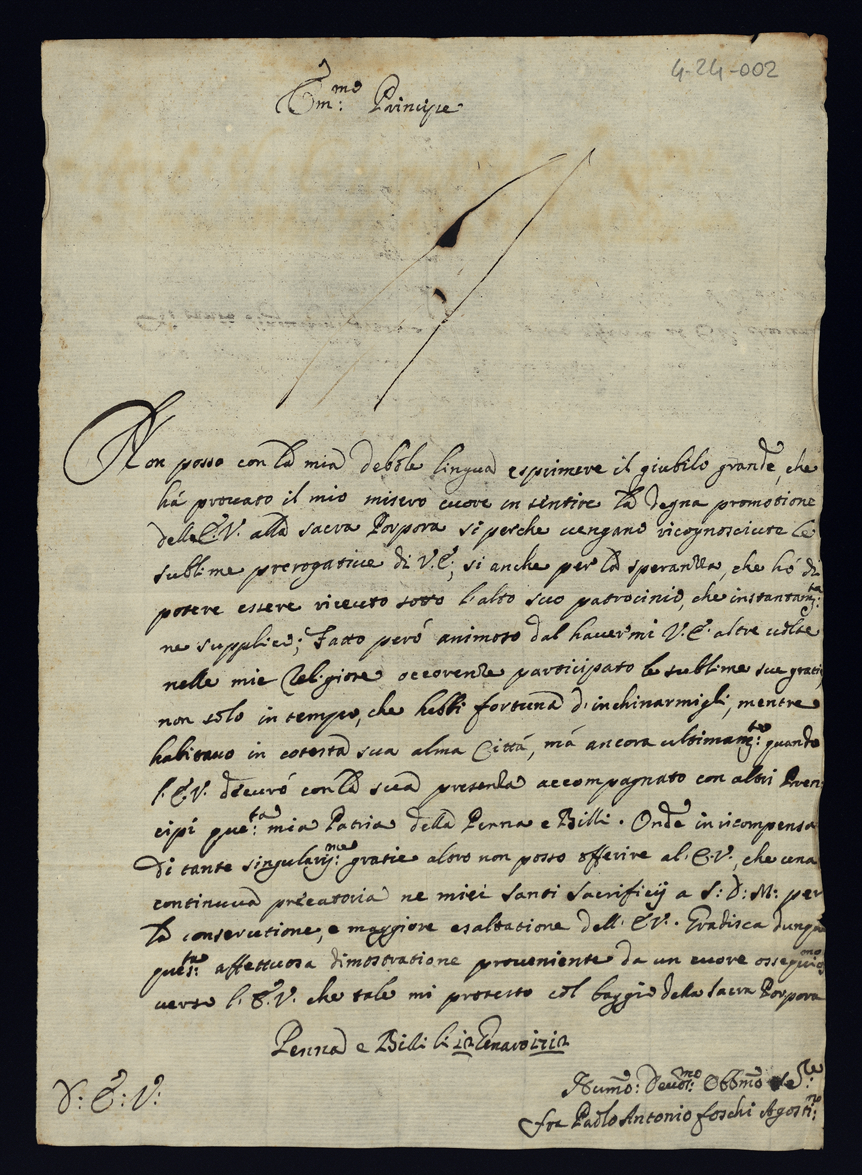 4-24-002
Em:mo Principe
Non posso con la mia debole lingua esprimere il giubilo grande, che
há provato il mio misero cuore in sentire la degna promotione
dell E.V. alla sacra Porpora si perche vengano ricognosciute le
sublime prerogative di V.E., si anche per la speranza, che hó di
potere essere riceuto sotto l'alto suo patrocinio, che instantam:te
ne supplico; Fatto peró animoso dal havermi V.E. altre volte
nelle mie Religiose occorenze participato le sublime sue gratie
non solo in tempo, che hebbi fortuna d'inchinarmigli, mentre
habitavo in cotesta sua alma Cittá, má ancora ultimam:te quando
l'E.V. decoró con la sua presenza accompagnato con altri Pren
cipi que:ta mia Patria della Penna e Billi. Onde in ricompensa
di tante singularis:me gratie altro non posso offerire al E.V., che una
continua precatoria ne miei santi sacrificij a S: D: M: per
la conservatione, e maggiore esaltatione dell' E.V. Gradisca dunque
ques:ta affettuosa dimostratione proveniente da un cuore ossequioso
verso l'E.V. che tale mi protesto col baggio della Sacra Porpora
Penna e Billi li 12 Genaro 1712
D: E: V:
Humo: Devot:mo Obbmo Se:re
fra Paolo Antonio Foschi Agosti:no